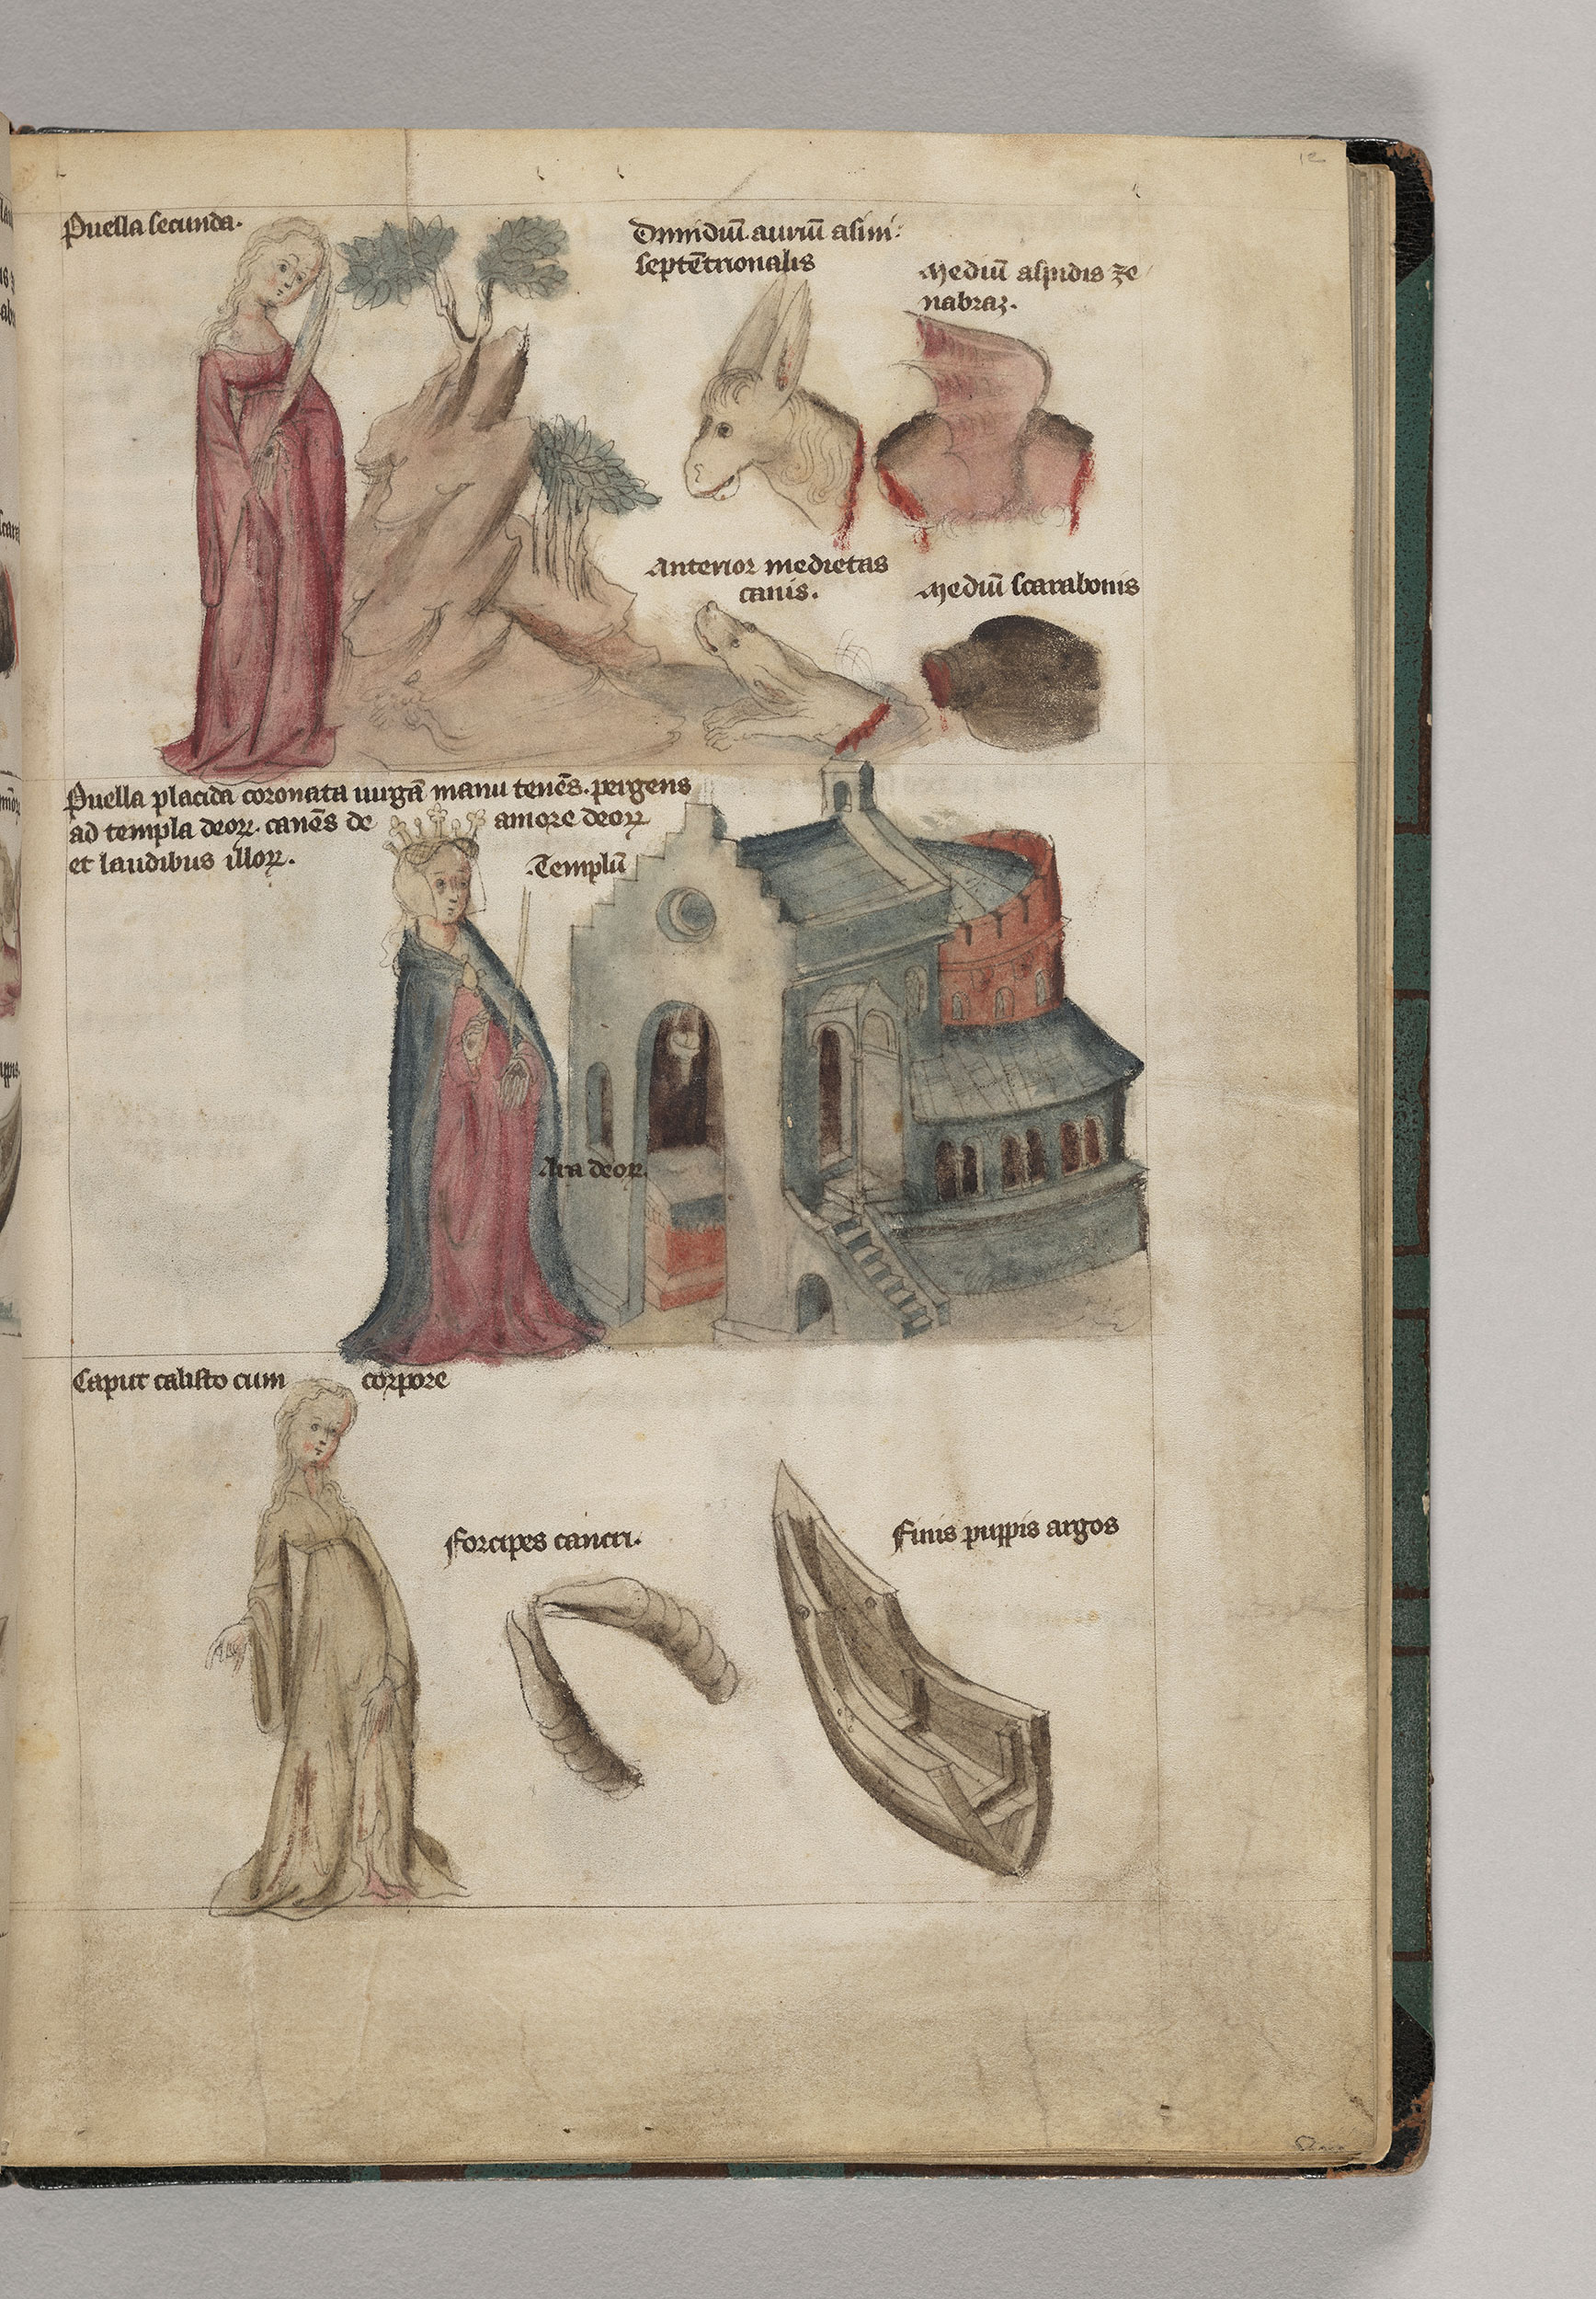 12
Puella secunda.
Dimidiū auriū asini
septētrionalis
Mediū aspidis ze
nabraꝫ.
Anterior medietas
canis.
Mediū scarabonis
Puella placida coronata uirgā manu tenēs. pergens
ad templa deoꝝ. canēs de amore deoꝝ
et laudibus illoꝝ.
Templū
Ara deoꝝ.
Caput calisto cum corpore
Forcipes cancri.
Finis puppis argos